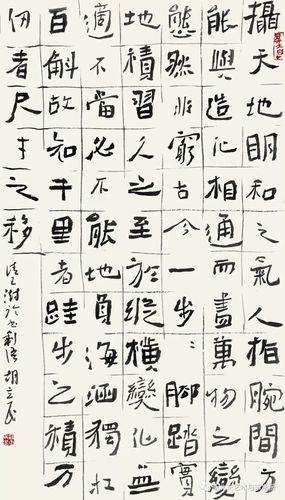 攝天地明和之氣入指腕間方
能與造化相通而盡萬物之變
態然非窮古今一步〻腳踏實
地積習久之至於縱橫變化無
適不當必不能地負海涵獨扛
百斛故知千里者跬步之積万
仞者尺寸之移 清王澍論書剩語 胡立民